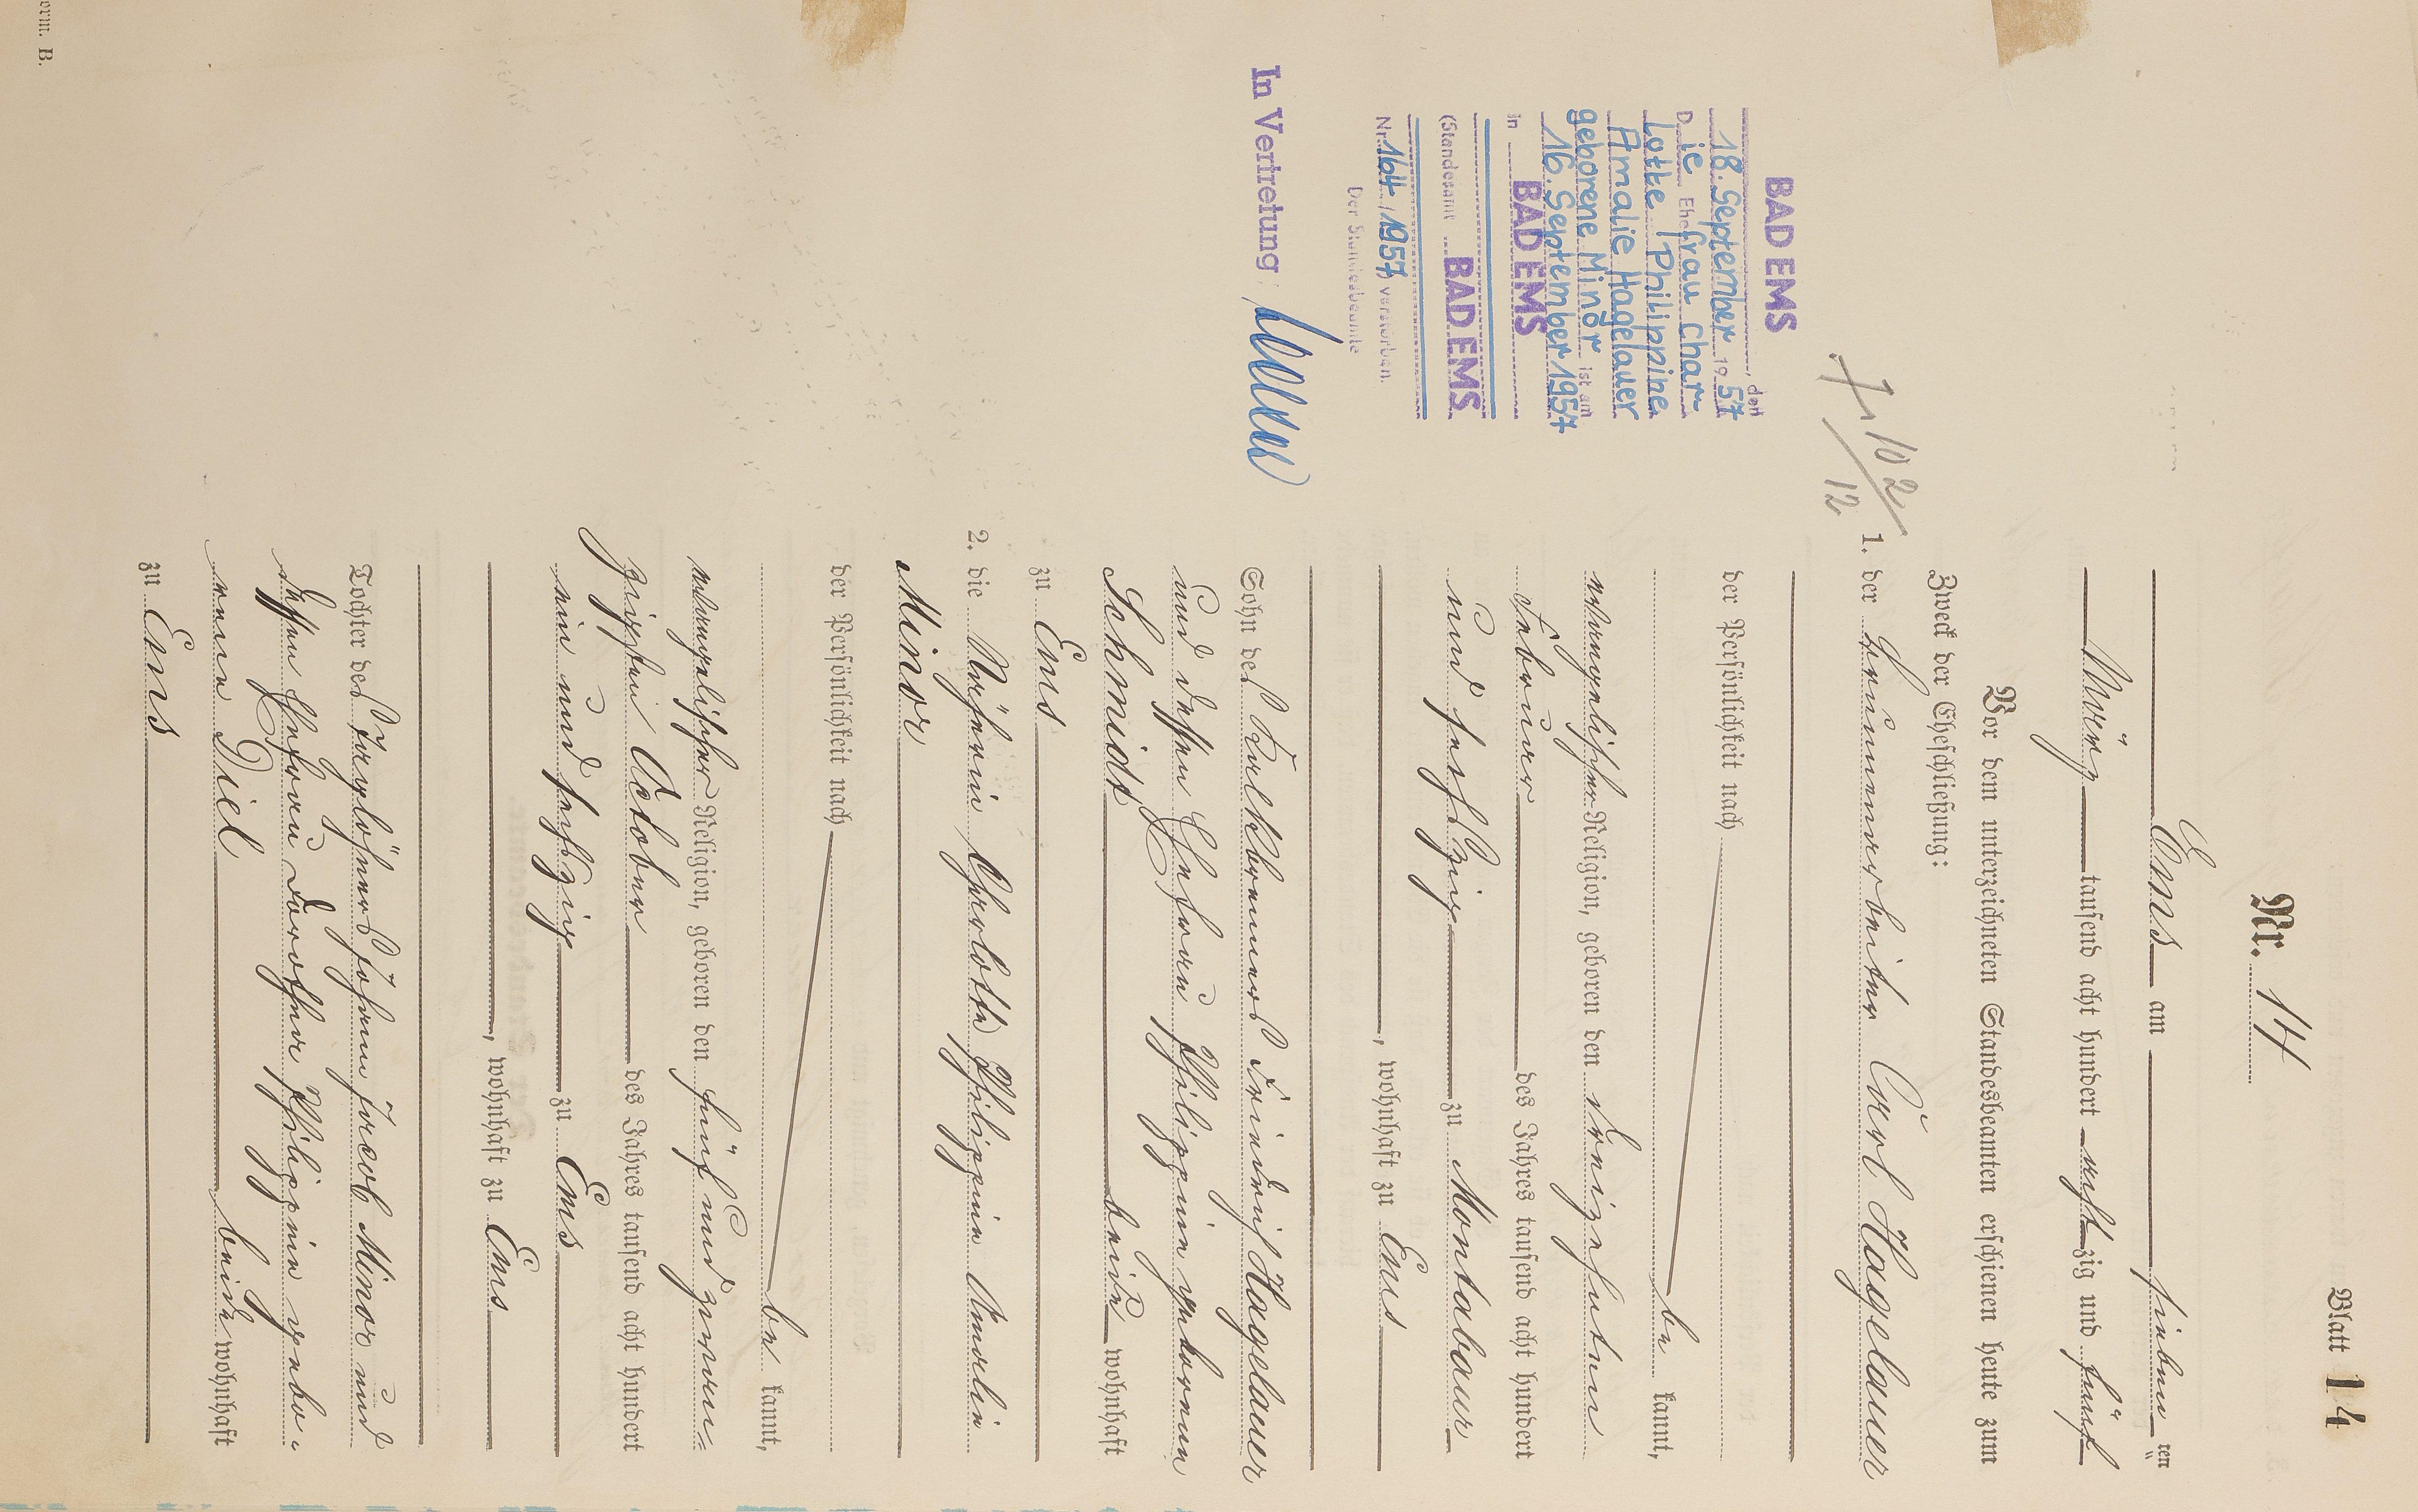 Blatt 14
Nr. 14
Ems am sieben ten
März tausend acht hundert achtzig und fünf
Vor dem unterzeichneten Standesbeamten erschienen heute zum
Zweck der Eheschließung:
1. der Grubenarbeiter Carl Hagelauer
der Persönlichkeit nach
be kannt,
evangelischer Religion, geboren den dreizehnten
Februar des Jahres tausend acht hundert
und sechszig zu Montabaur
, wohnhaft zu Ems
Sohn des Kalkbrenners Friedrich Hagelauer
und dessen Ehefrau Philippine geborene
Schmidt beide wohnhaft
zu Ems
2. die Näherin Charlotte Philippine Amalie
Minor
der Persönlichkeit nach
be kannt,
evangelischer Religion, geboren den fünf und zwan=
zigsten October des Jahres tausend acht hundert
ein und sechszig zu Ems
, wohnhaft zu Ems
Tochter des Taglöhners Johann Jacob Minor und
dessen Ehefrau Dorothea Philippine gebo=
rene Diel beide wohnhaft
zu Ems
7/102/12
BAD EMS, den
18. September 1957
Die Ehefrau Char-
lotte Philippine
Amalie Hagelauer
geborene Minor ist am
16. September 1957
in BAD EMS
(Standesamt BAD EMS
Nr. 164/1957) verstorben.
Der Standesbeamte
In Vertretung:
orm. B.